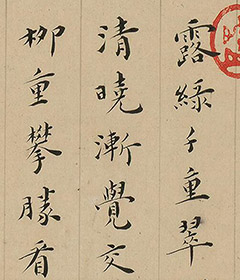 露綠千重翠
清曉漸覺交
柳重攀勝看